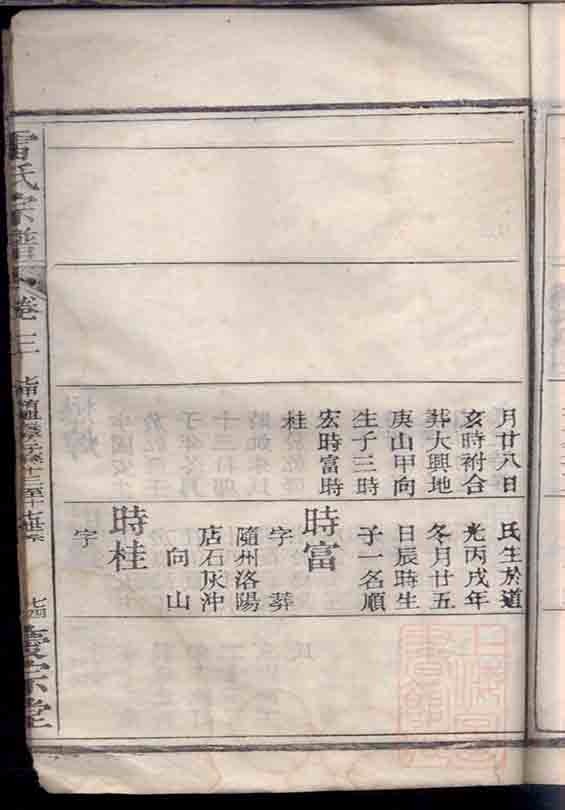 月廿八日
亥時祔合
葬大興地
庚山甲向
生子三時
宏時富時
桂
氏生於道
光丙戌年
冬月廿五
日辰時生
子一名順
時富
字 葬
隨州洛陽
店石灰沖
向山
時桂
字
雷氏宗譜
卷三
七四